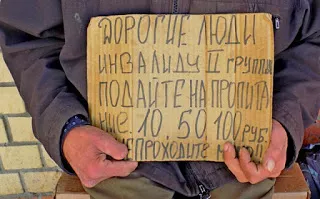 ДОРОГИЕ ЛЮДИ
ИНВАЛИДУ II ГРУППЫ
ПОДАЙТЕ НА ПРОПИТА
НИЕ. 10. 50. 100 РУБ.
НЕ ПРОХОДИТЕ